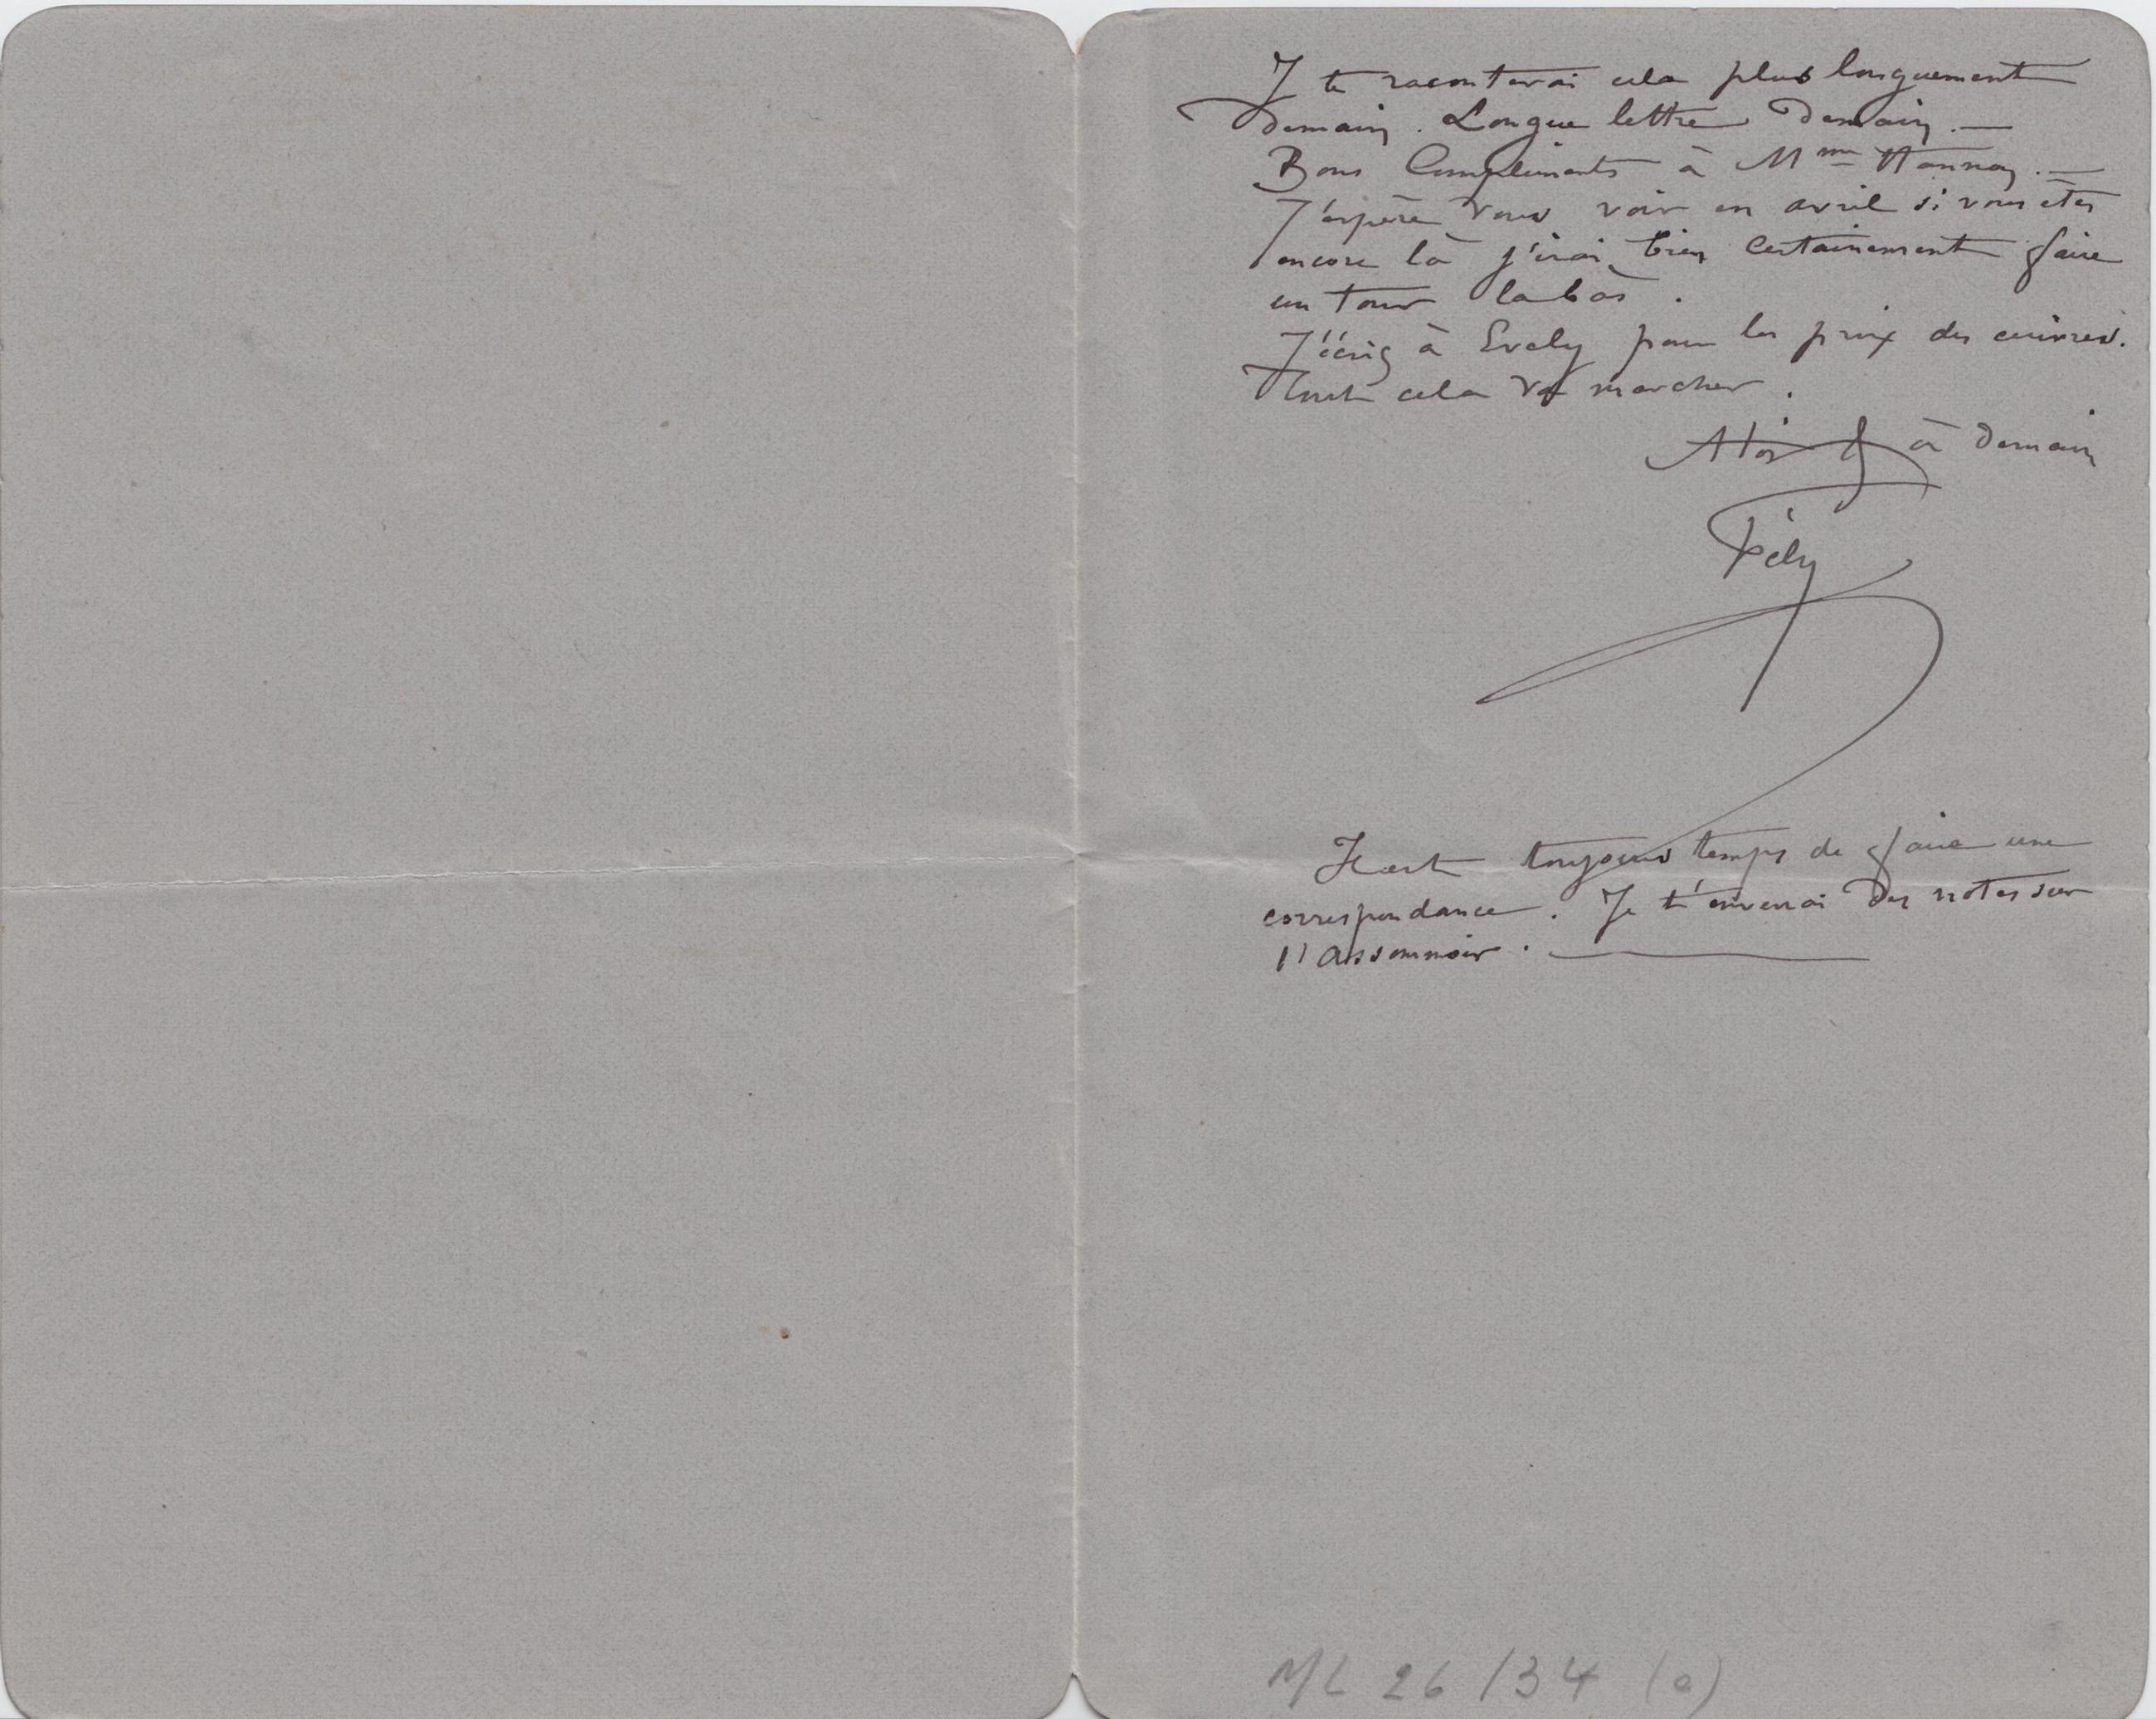 J te raconterai cela plus longuement
demain. Longue lettre demain. —
Bons Compliments à Mme Hannon. —
J'espère vous voir en avril si vous êtes
encore là j'irai bien certainement faire
un tour labas.
J'écris à Evely pour les prix des cuivres.
Tout cela va marcher.
à demain
Fély
Il est toujours temps de faire une
correspondance. Je t'enverrai des notes sur
l'Assommoir. —
ML 26/34 (a)